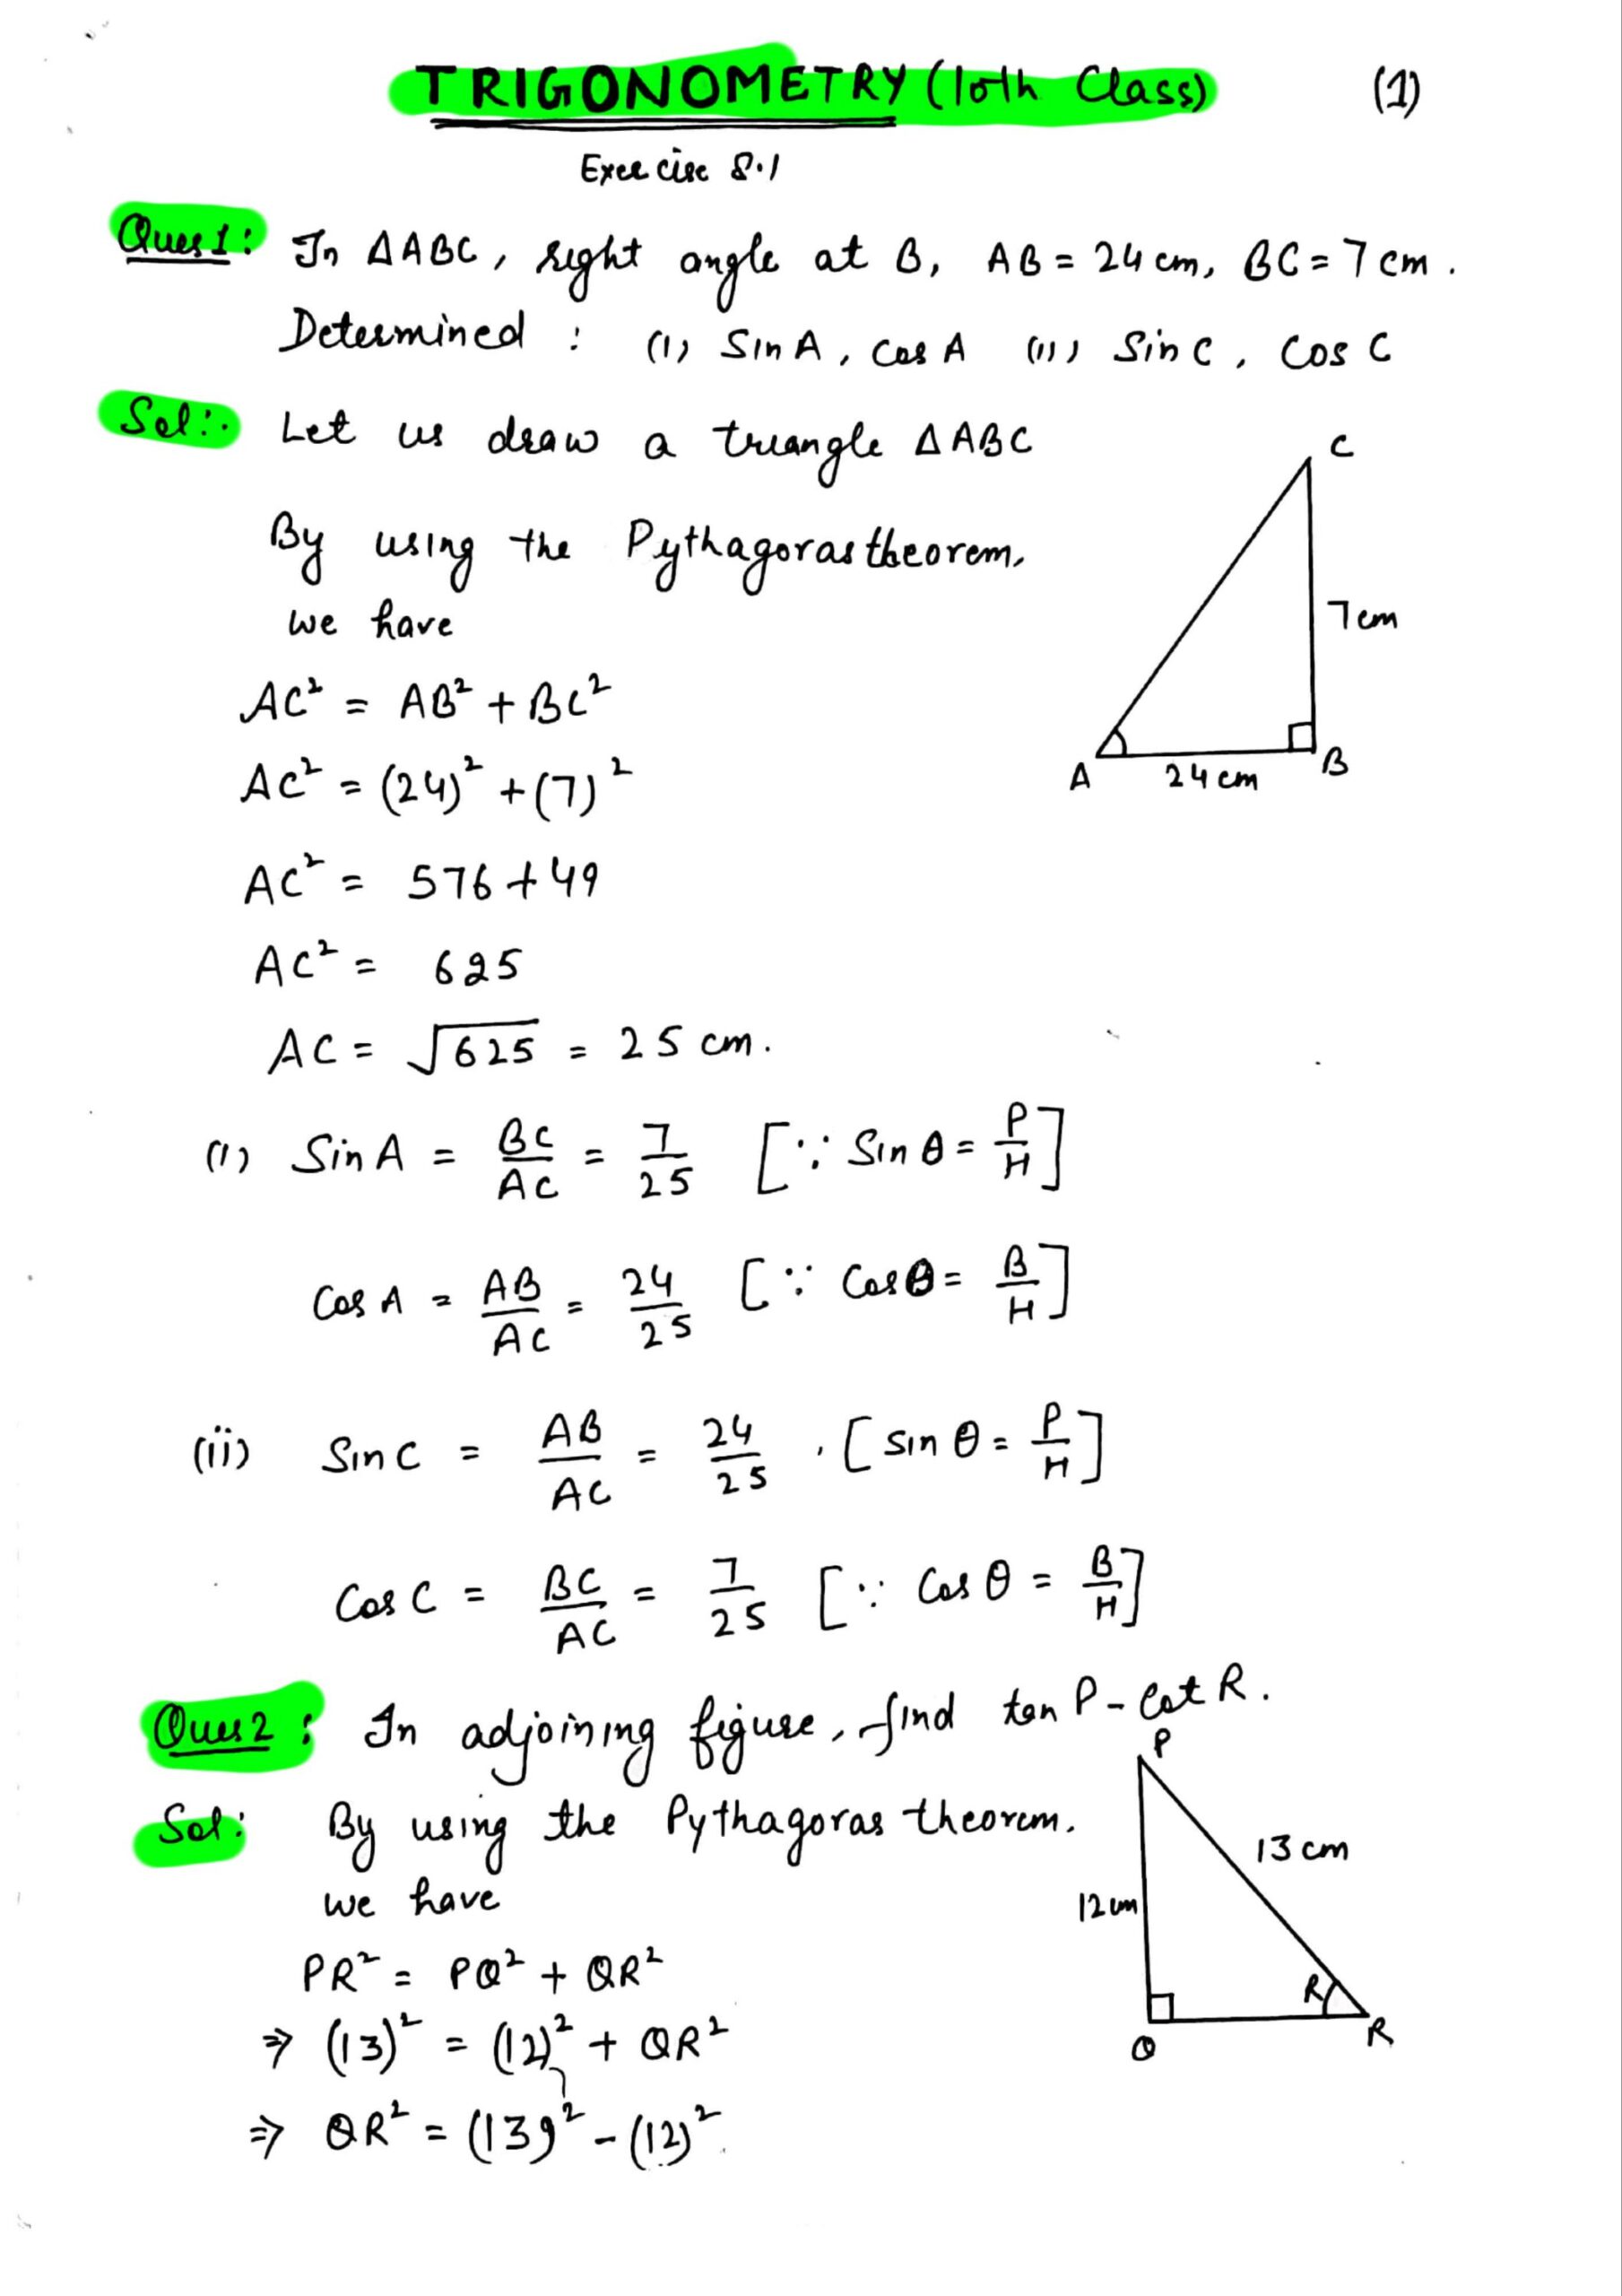 TRIGONOMETRY (10th Class) (1)
Exercise 8.1
Ques 1: In ΔABC, right angle at B, AB = 24 cm, BC = 7 cm.
Determined : (i) Sin A, Cos A (ii) Sin C, Cos C
Sol:. Let us draw a triangle ΔABC
C
By using the Pythagoras theorem,
we have
7cm
AC² = AB² + BC²
A 24 cm B
AC² = (24)² + (7)²
AC² = 576 + 49
AC² = 625
AC = √625 = 25 cm.
(i) Sin A = BC/AC = 7/25 [∵ Sin θ = P/H]
Cos A = AB/AC = 24/25 [∵ Cos θ = B/H]
(ii) Sin C = AB/AC = 24/25 . [Sin θ = P/H]
Cos C = BC/AC = 7/25 [∵ Cos θ = B/H]
Ques 2 : In adjoining figure, find tan P - Cot R.
P
Sol: By using the Pythagoras theorem.
13 cm
we have
12 cm
PR² = PQ² + QR²
R
⇒ (13)² = (12)² + QR²
Q R
⇒ QR² = (13)² - (12)²